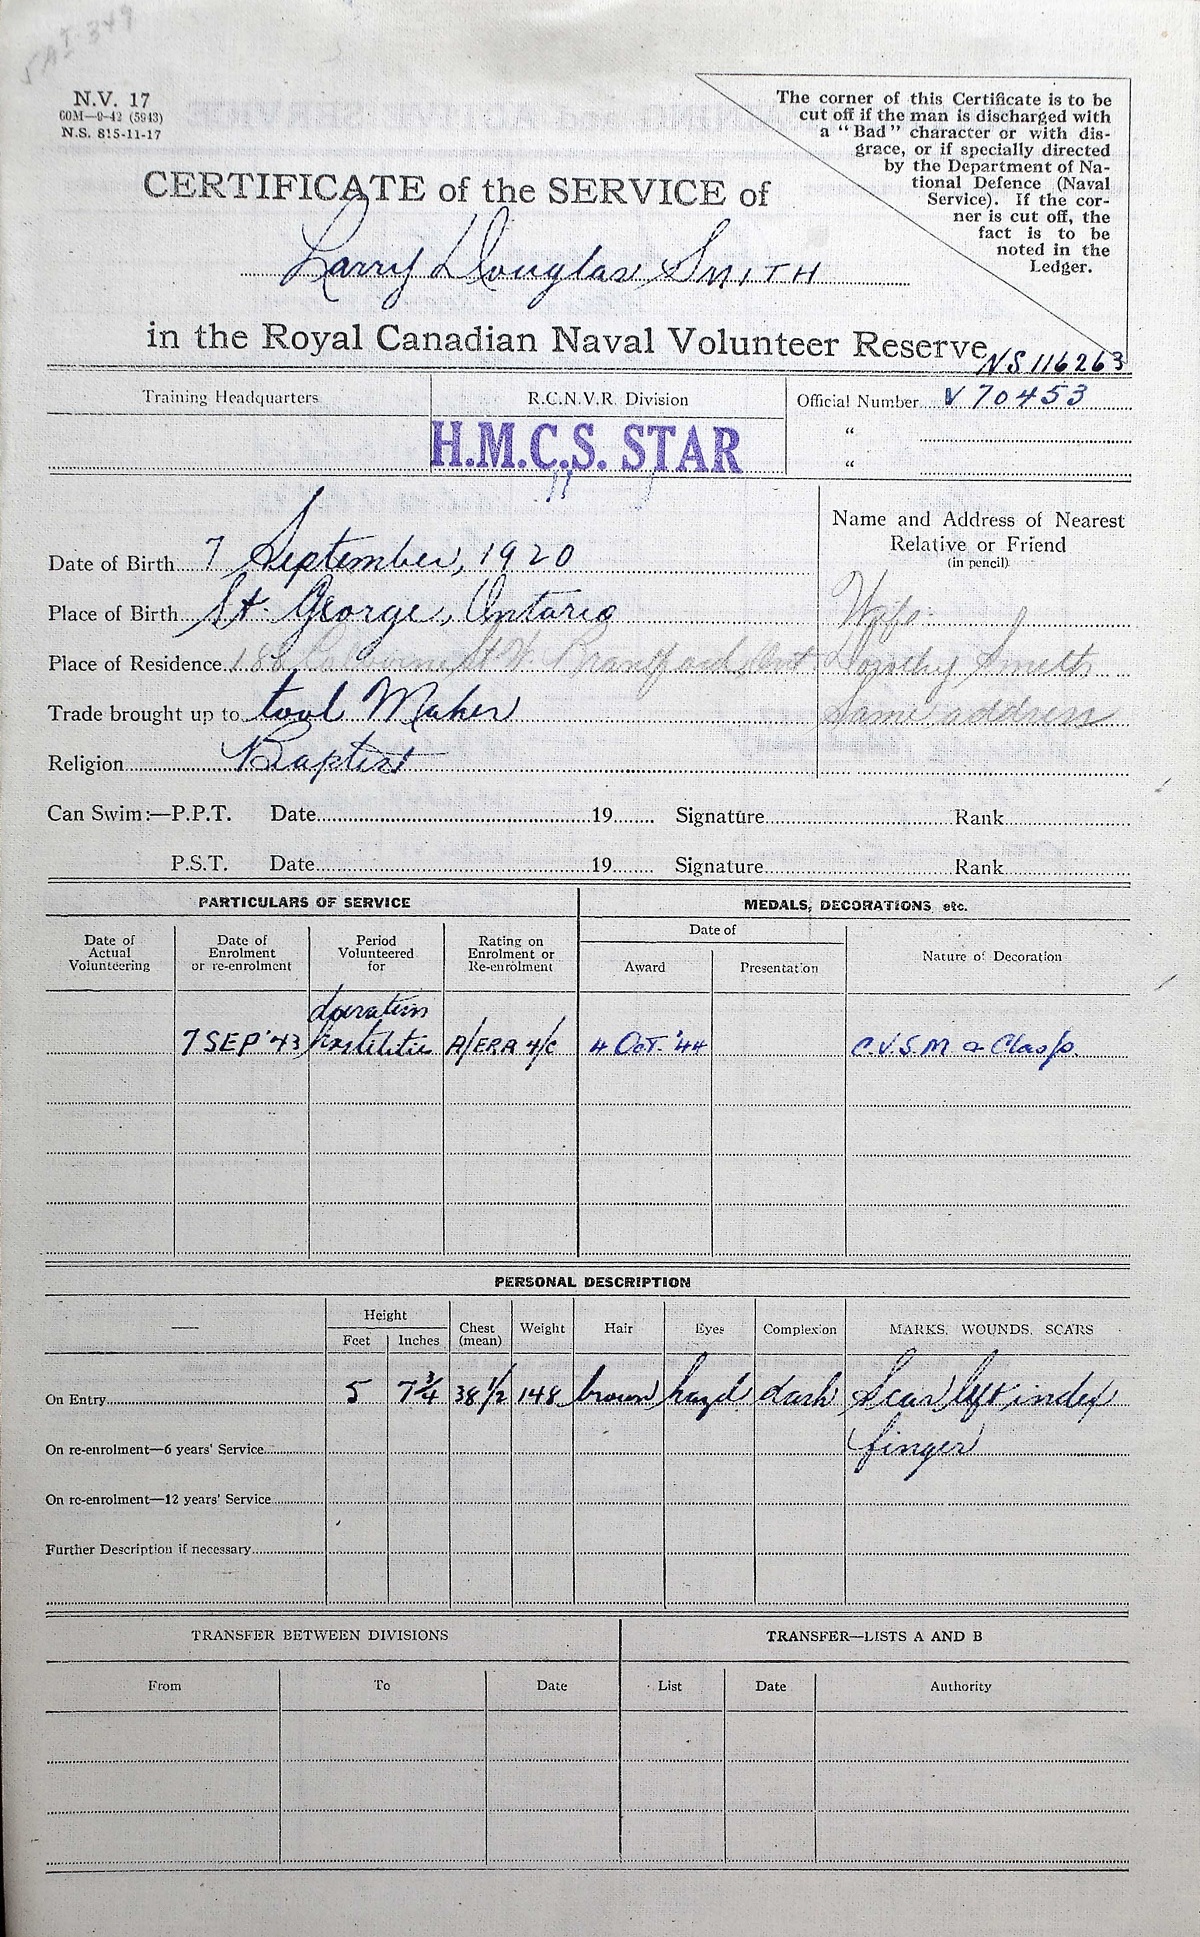 5AI-349
N.V. 17
60M—9-42 (5943)
N.S. 815-11-17
The corner of this Certificate is to be
cut off if the man is discharged with
a "Bad" character or with dis-
grace, or if specially directed
by the Department of Na-
tional Defence (Naval
Service). If the cor-
ner is cut off, the
fact is to be
noted in the
Ledger.
CERTIFICATE of the SERVICE of
Larry Douglas SMITH
in the Royal Canadian Naval Volunteer Reserve
NS 116263
Training Headquarters R.C.N.V.R. Division Official Number V 70453
"
"
H.M.C.S. STAR
Name and Address of Nearest
Relative or Friend
(in pencil)
Date of Birth 7 September, 1920
Place of Birth St. George, Ontario Wife.
Place of Residence 188 St W. Brantford, Ont. Dorothy Smith
Trade brought up to tool Maker Same address
Religion Baptist
Can Swim:—P.P.T. Date 19 Signature Rank
P.S.T. Date 19 Signature Rank
PARTICULARS OF SERVICE MEDALS, DECORATIONS, etc.
Date of Actual Volunteering Date of Enrolment or re-enrolment Period Volunteered for Rating on Enrolment or Re-enrolment Date of Award Presentation Nature of Decoration
duration
7 SEP '43 hostilities A/ERA 4/C 4 OCT. '44 C.V.S.M. & Clasp.
PERSONAL DESCRIPTION
— Height Feet Inches Chest (mean) Weight Hair Eyes Complexion MARKS, WOUNDS, SCARS
On Entry 5 7 3/4 38 1/2 148 brown hazel dark Scar left index
On re-enrolment—6 years' Service finger
On re-enrolment—12 years' Service
Further Description if necessary
TRANSFER BETWEEN DIVISIONS TRANSFER—LISTS A AND B
From To Date List Date Authority